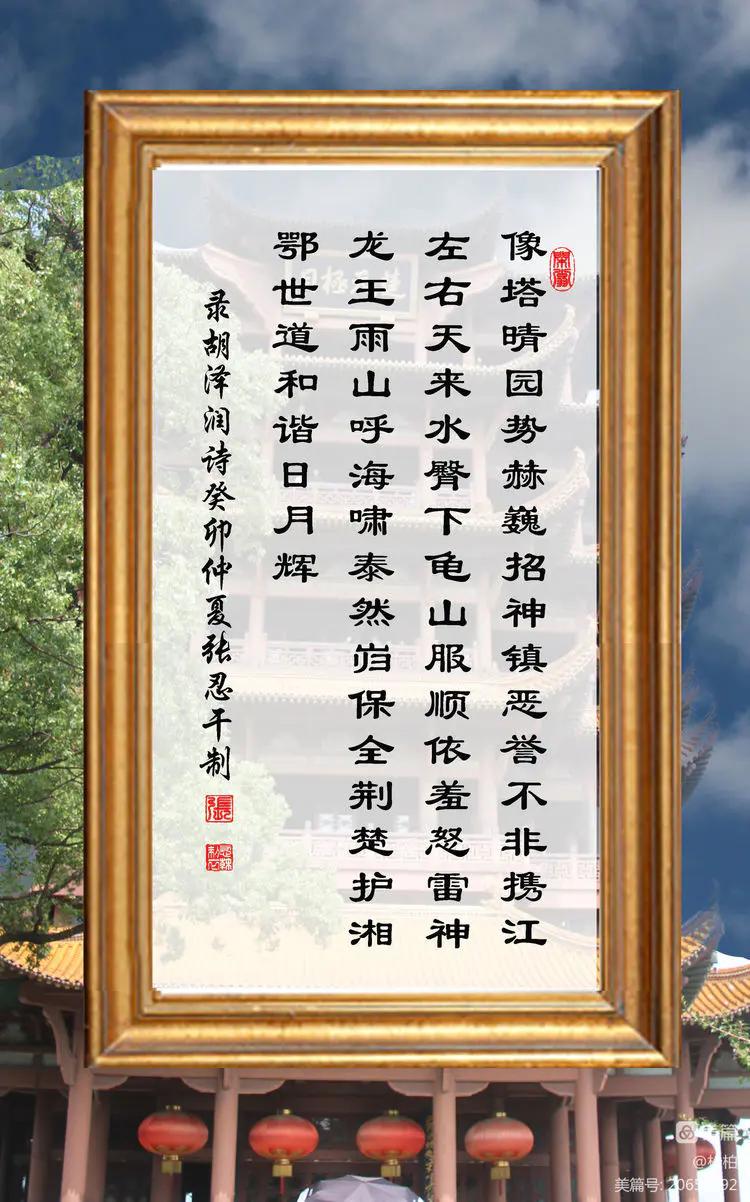 像塔晴园势赫巍招神镇恶誉不非携江
左右天来水臀下龟山服顺依羞怒雷神
龙王雨山呼海啸泰然岿保全荆楚护湘
鄂世道和谐日月辉
录胡泽润诗癸卯仲夏张忍干制
張
美篇
@杨柏